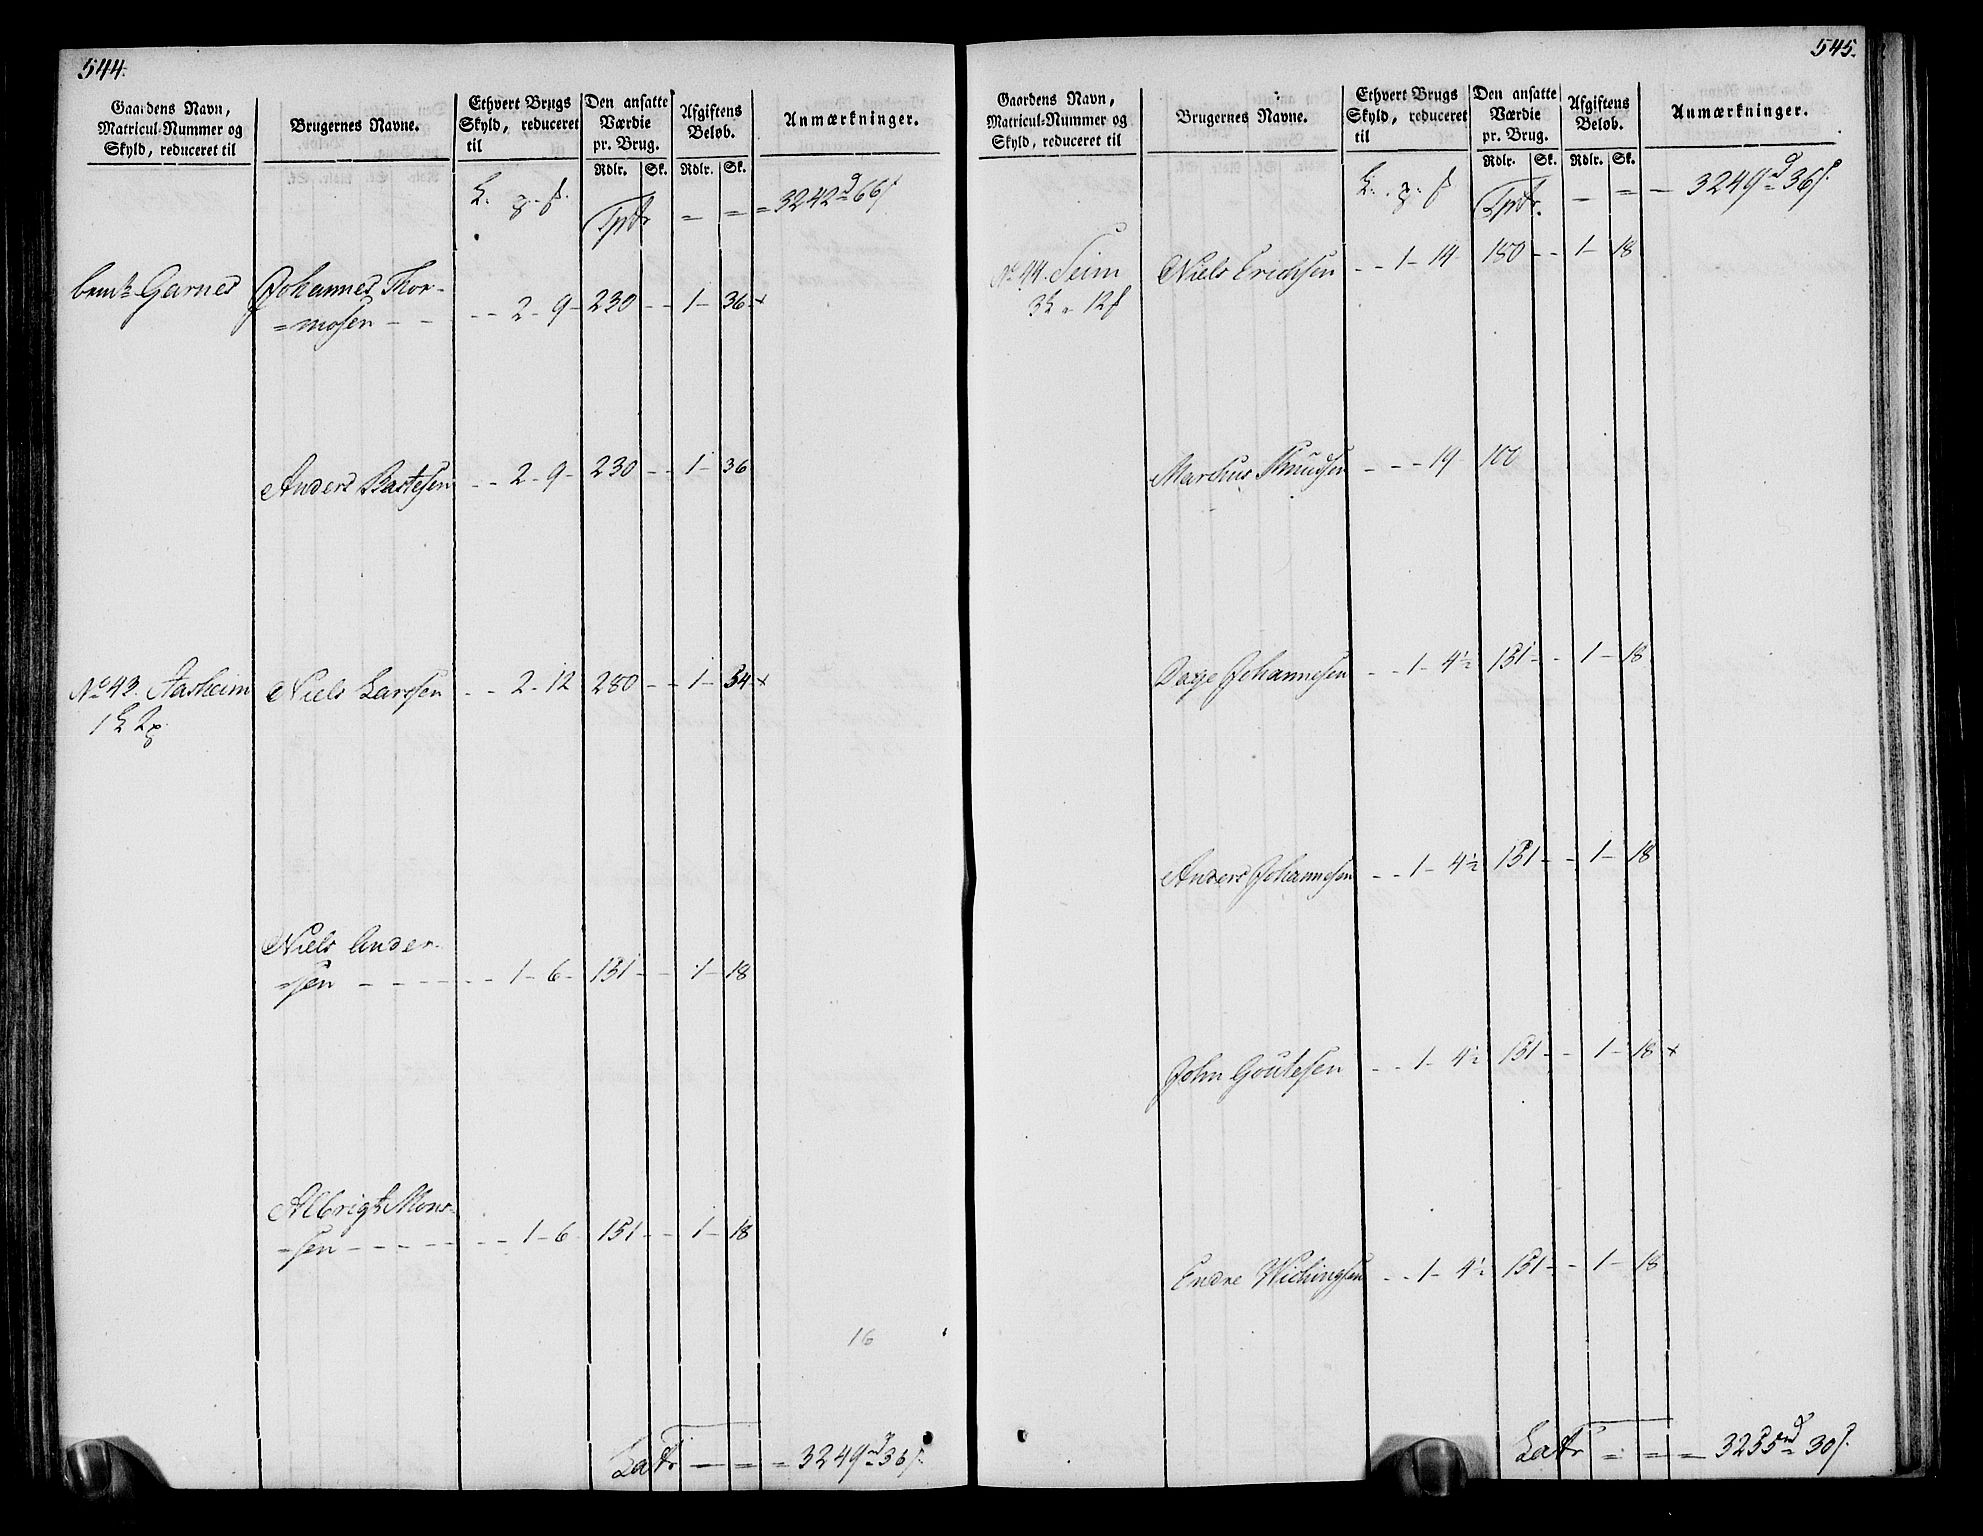 544.
Gaardens Navn, Matricul-Nummer og Skyld, reduceret til
Brugernes Navne.
Ethvert Brugs Skyld, reduceret til
Den ansatte Værdie pr. Brug.
Afgiftens Beløb.
Anmærkninger.
Rdlr. Sk. Rdlr. Sk.
Tpdr = = = 3242 66
Garnes Johannes Thor-
=mosen - - - - 2 - 9 - 230 - - 1 - 36 x
Anders Bastesen - - 2 - 9 - 230 - - 1 - 36
No 43. Aasheim Niels Larssen - - 2 - 12 280 - - 1 - 54 x
Niels Ander-
=sen - - - - - - 1 - 6 - 151 - - 1 - 18
Albrigt Mons-
=sen - - - - - - 1 - 6 151 - - 1 - 18
16
Latr - = = = 3249 36
545.
Gaardens Navn, Matricul-Nummer og Skyld, reduceret til
Brugernes Navne.
Ethvert Brugs Skyld, reduceret til
Den ansatte Værdie pr. Brug.
Afgiftens Beløb.
Anmærkninger.
Rdlr. Sk. Rdlr. Sk.
Tpdr. - = - 3249 36
No 44. Seim Niels Erichsen - - 1 - 14 180 - - 1 - 18
Marchus Knudsen - - - 19 100
Dage Johannesen - - 1 - 4½ 151 - - 1 - 18
Anders Johannesen - - 1 - 4½ 151 - - 1 - 18
John Goutesen - - 1 - 4½ 151 - - 1 - 18 x
Endre Wichingsen - - 1 - 4½ 151 - - 1 - 18
Latr = = = 3255 30